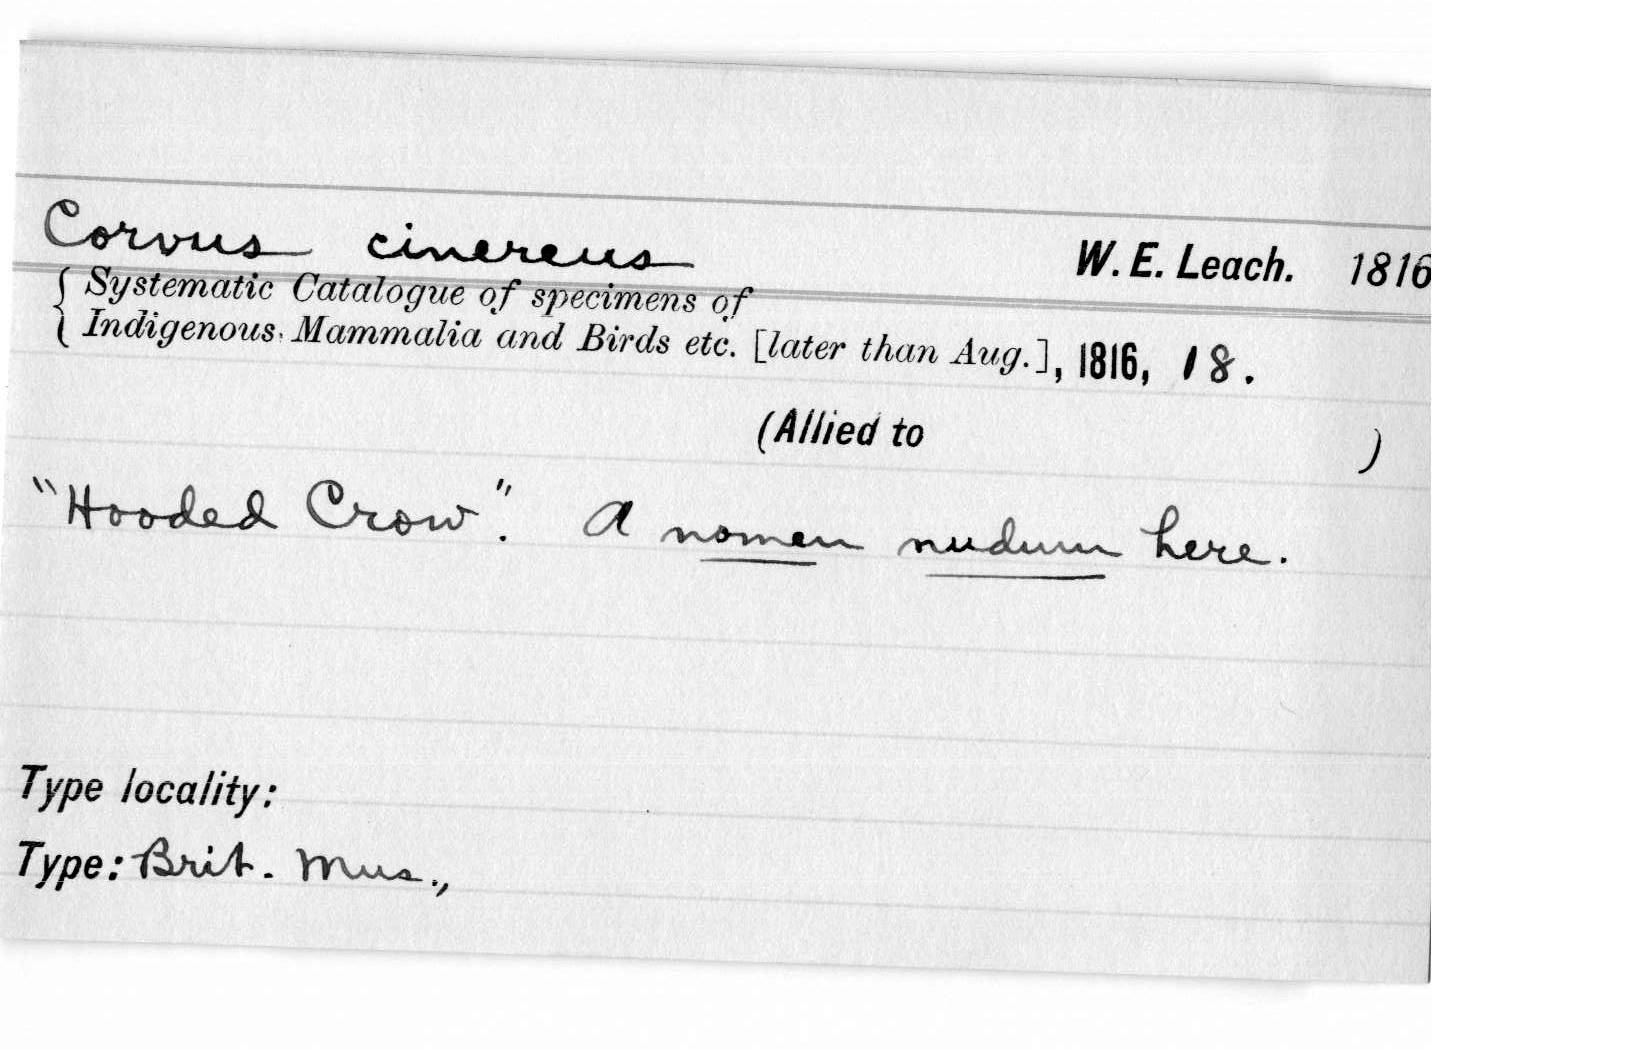 Corvus cinereus W. E. Leach. 1816
{ Systematic Catalogue of specimens of
Indigenous. Mammalia and Birds etc. [later than Aug.], 1816, 18.
(Allied to )
"Hooded Crow". A nomen nudum here.
Type locality:
Type: Brit. Mus.,